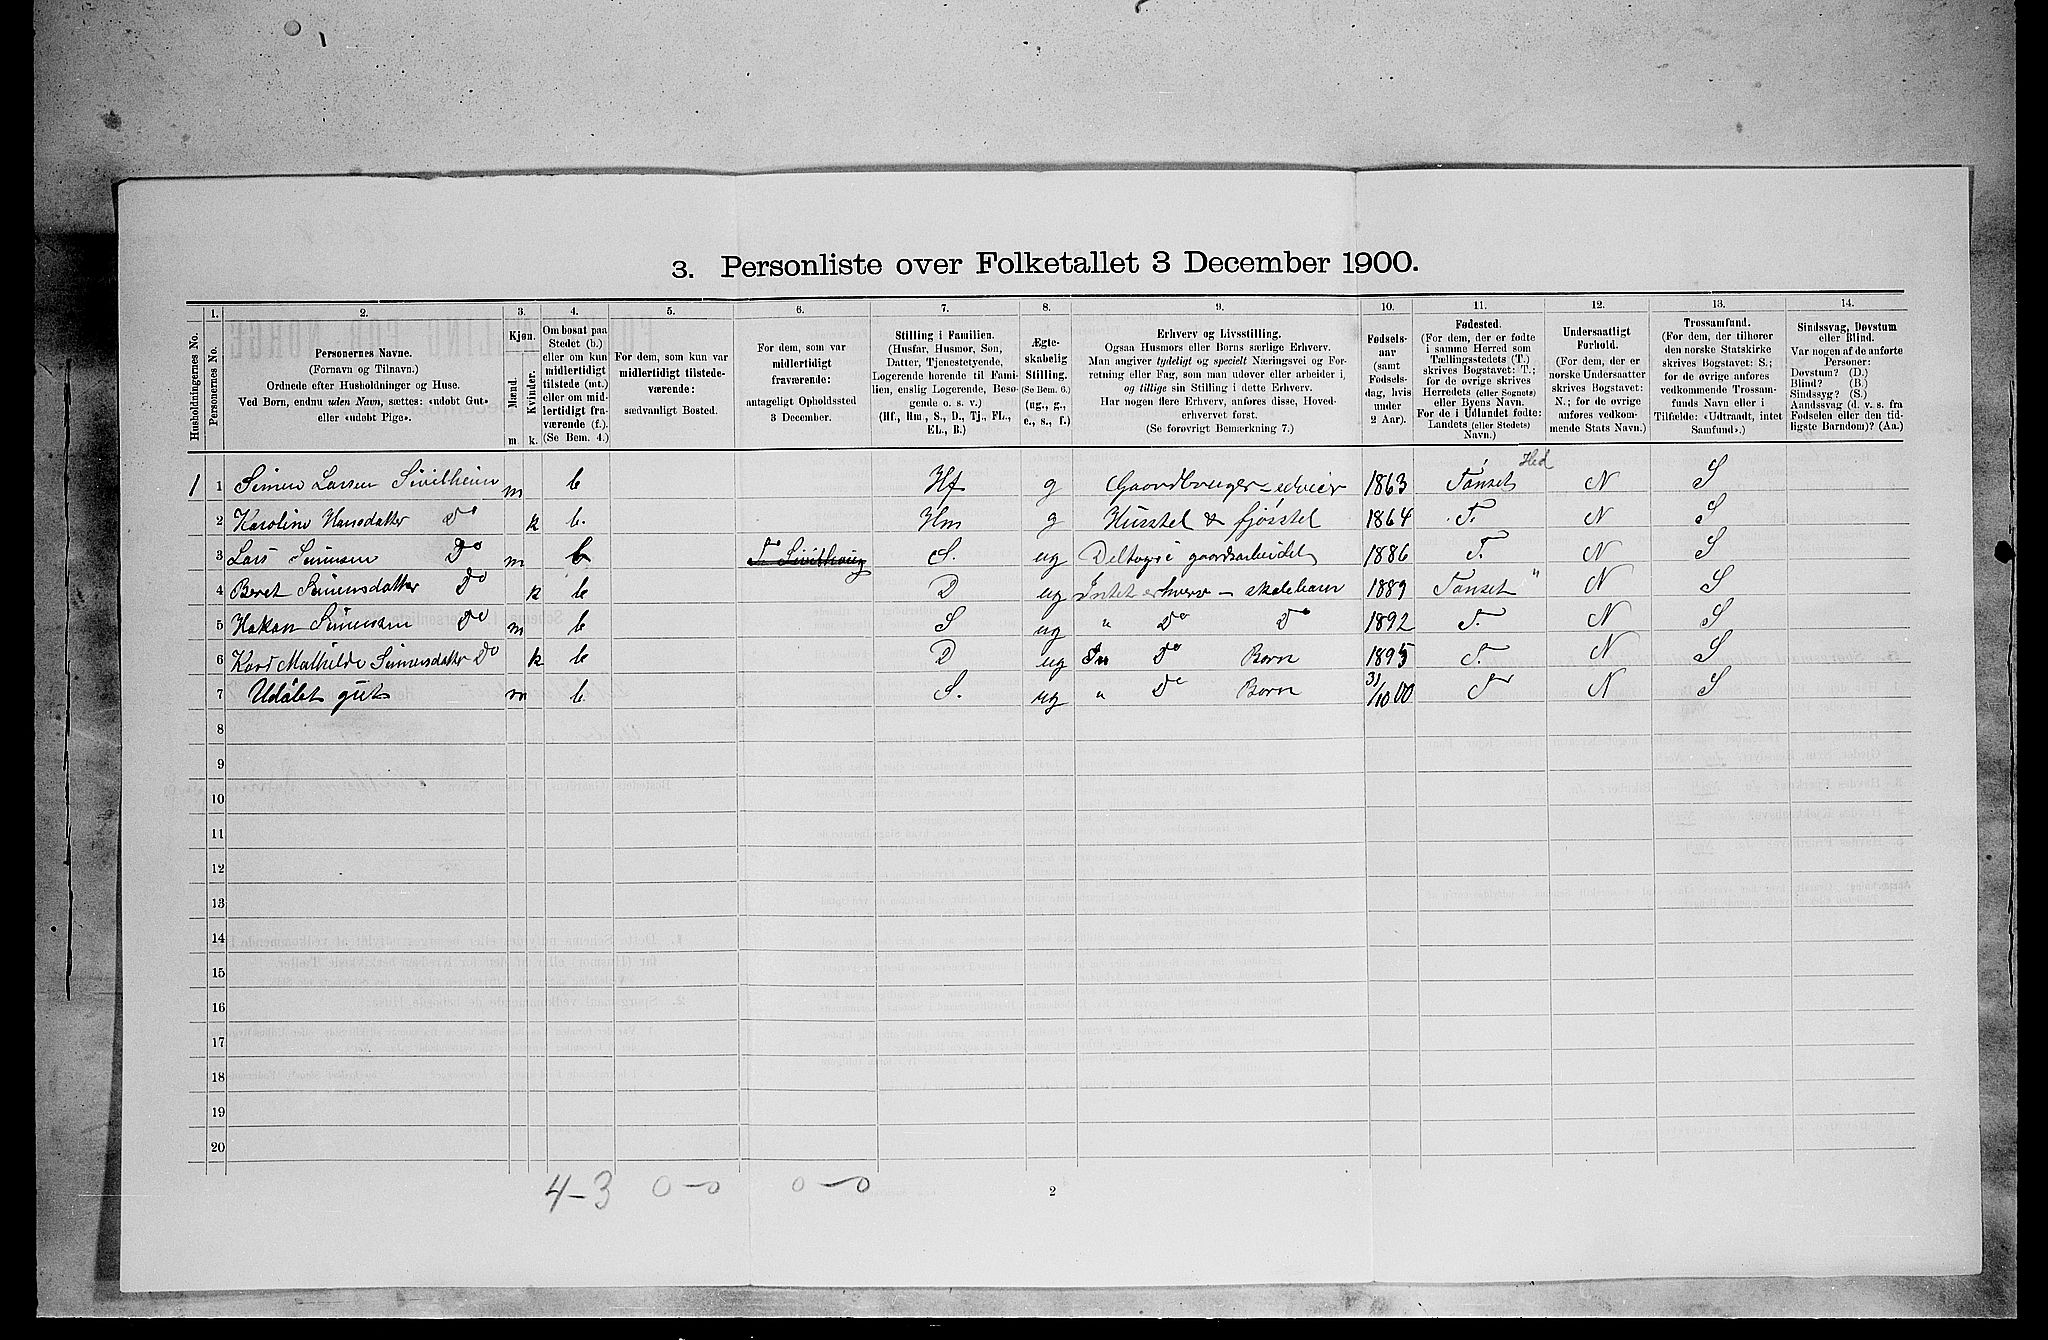 3. Personliste over Folketallet 3 December 1900.
Husholdningernes No.
1.
Personernes No.
2.
Personernes Navne.
(Fornavn og Tilnavn.)
Ordnede efter Husholdninger og Huse.
Ved Børn, endnu uden Navn, sættes: «udøbt Gut»
eller «udøbt Pige».
3.
Kjøn.
Mænd.
Kvinder.
m
k.
4.
Om bosat paa
Stedet (b.)
eller om kun
midlertidigt
tilstede (mt.)
eller om mid-
lertidigt fra-
værende (f.).
(Se Bem. 4.)
5.
For dem, som kun var
midlertidigt tilstede-
værende:
sædvanligt Bosted.
6.
For dem, som var
midlertidigt
fraværende:
antageligt Opholdssted
3 December.
7.
Stilling i Familien.
(Husfar, Husmor, Søn,
Datter, Tjenestetyende,
Logerende hørende til Fami-
lien, enslig Logerende, Besø-
gende o. s. v.)
(Hf., Hm., S., D., Tj., FL.,
EL., B.)
8.
Ægte-
skabelig
Stilling.
(Se Bem. 6.)
(ug., g.,
e., s., f.)
9.
Erhverv og Livsstilling.
Ogsaa Husmors eller Børns særlige Erhverv.
Man angiver tydeligt og specielt Næringsvei og For-
retning eller Fag, som man udøver eller arbeider i,
og tillige sin Stilling i dette Erhverv.
Har nogen flere Erhverv, anføres disse, Hoved-
erhvervet først.
(Se forøvrigt Bemærkning 7.)
10.
Fødsels-
aar
(samt
Fødsels-
dag, hvis
under
2 Aar).
11.
Fødested.
(For dem, der er fødte
i samme Herred som
Tællingsstedets (T.)
skrives Bogstavet: T.;
for de øvrige skrives
Herredets (eller Sognets)
eller Byens Navn.
For de i Udlandet fødte:
Landets (eller Stedets)
Navn.)
12.
Undersaatligt
Forhold.
(For dem, der er
norske Undersaatter
skrives Bogstavet:
N.; for de øvrige
anføres vedkom-
mende Stats Navn.)
13.
Trossamfund.
(For dem, der tilhører
den norske Statskirke
skrives Bogstavet: S.;
for de øvrige anføres
vedkommende Trossam-
funds Navn eller i
Tilfælde: «Udtraadt, intet
Samfund».)
14.
Sindssvag, Døvstum
eller Blind.
Var nogen af de anførte
Personer:
Døvstum? (D.)
Blind? (B.)
Sindssyg? (S.)
Aandssvag (d. v. s. fra
Fødselen eller den tid-
ligste Barndom)? (Aa.)
1 1 Simen Larsen Sivilheim m b Hf g Gaardbruger - selveier 1863 Tønset N S
2 Karoline Hansdatter Do k b. Hm g Husstel & fjösstel 1864 T. N S
3 Lars Simensen Do m b S. ug Deltage i gaardsarbeidet 1886 T. N S
4 Beret Simensdatter Do k b D ug Intet erhverv - skolebarn 1889 Tønset " N S
5 Hakon Simensen Do m b S ug " Do Do 1892 T. N S
6 Kari Mathilde Simensdatter Do k b D ug Do Barn 1895 T. N S
7 Udøbt gut m b. S. ug " Do Barn 31/10 00 T N S
8
9
10
11
12
13
14
15
16
17
18
19
20
4-3 0-0 0-0
2